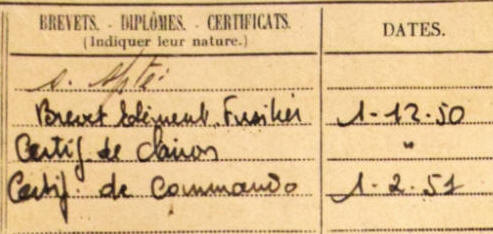 BREVETS. - DIPLÔMES. - CERTIFICATS.
(Indiquer leur nature.)
DATES.
Brevet Fusilier 1-12-50
Certif. de clairon "
Certif. de Commando 1-2-51